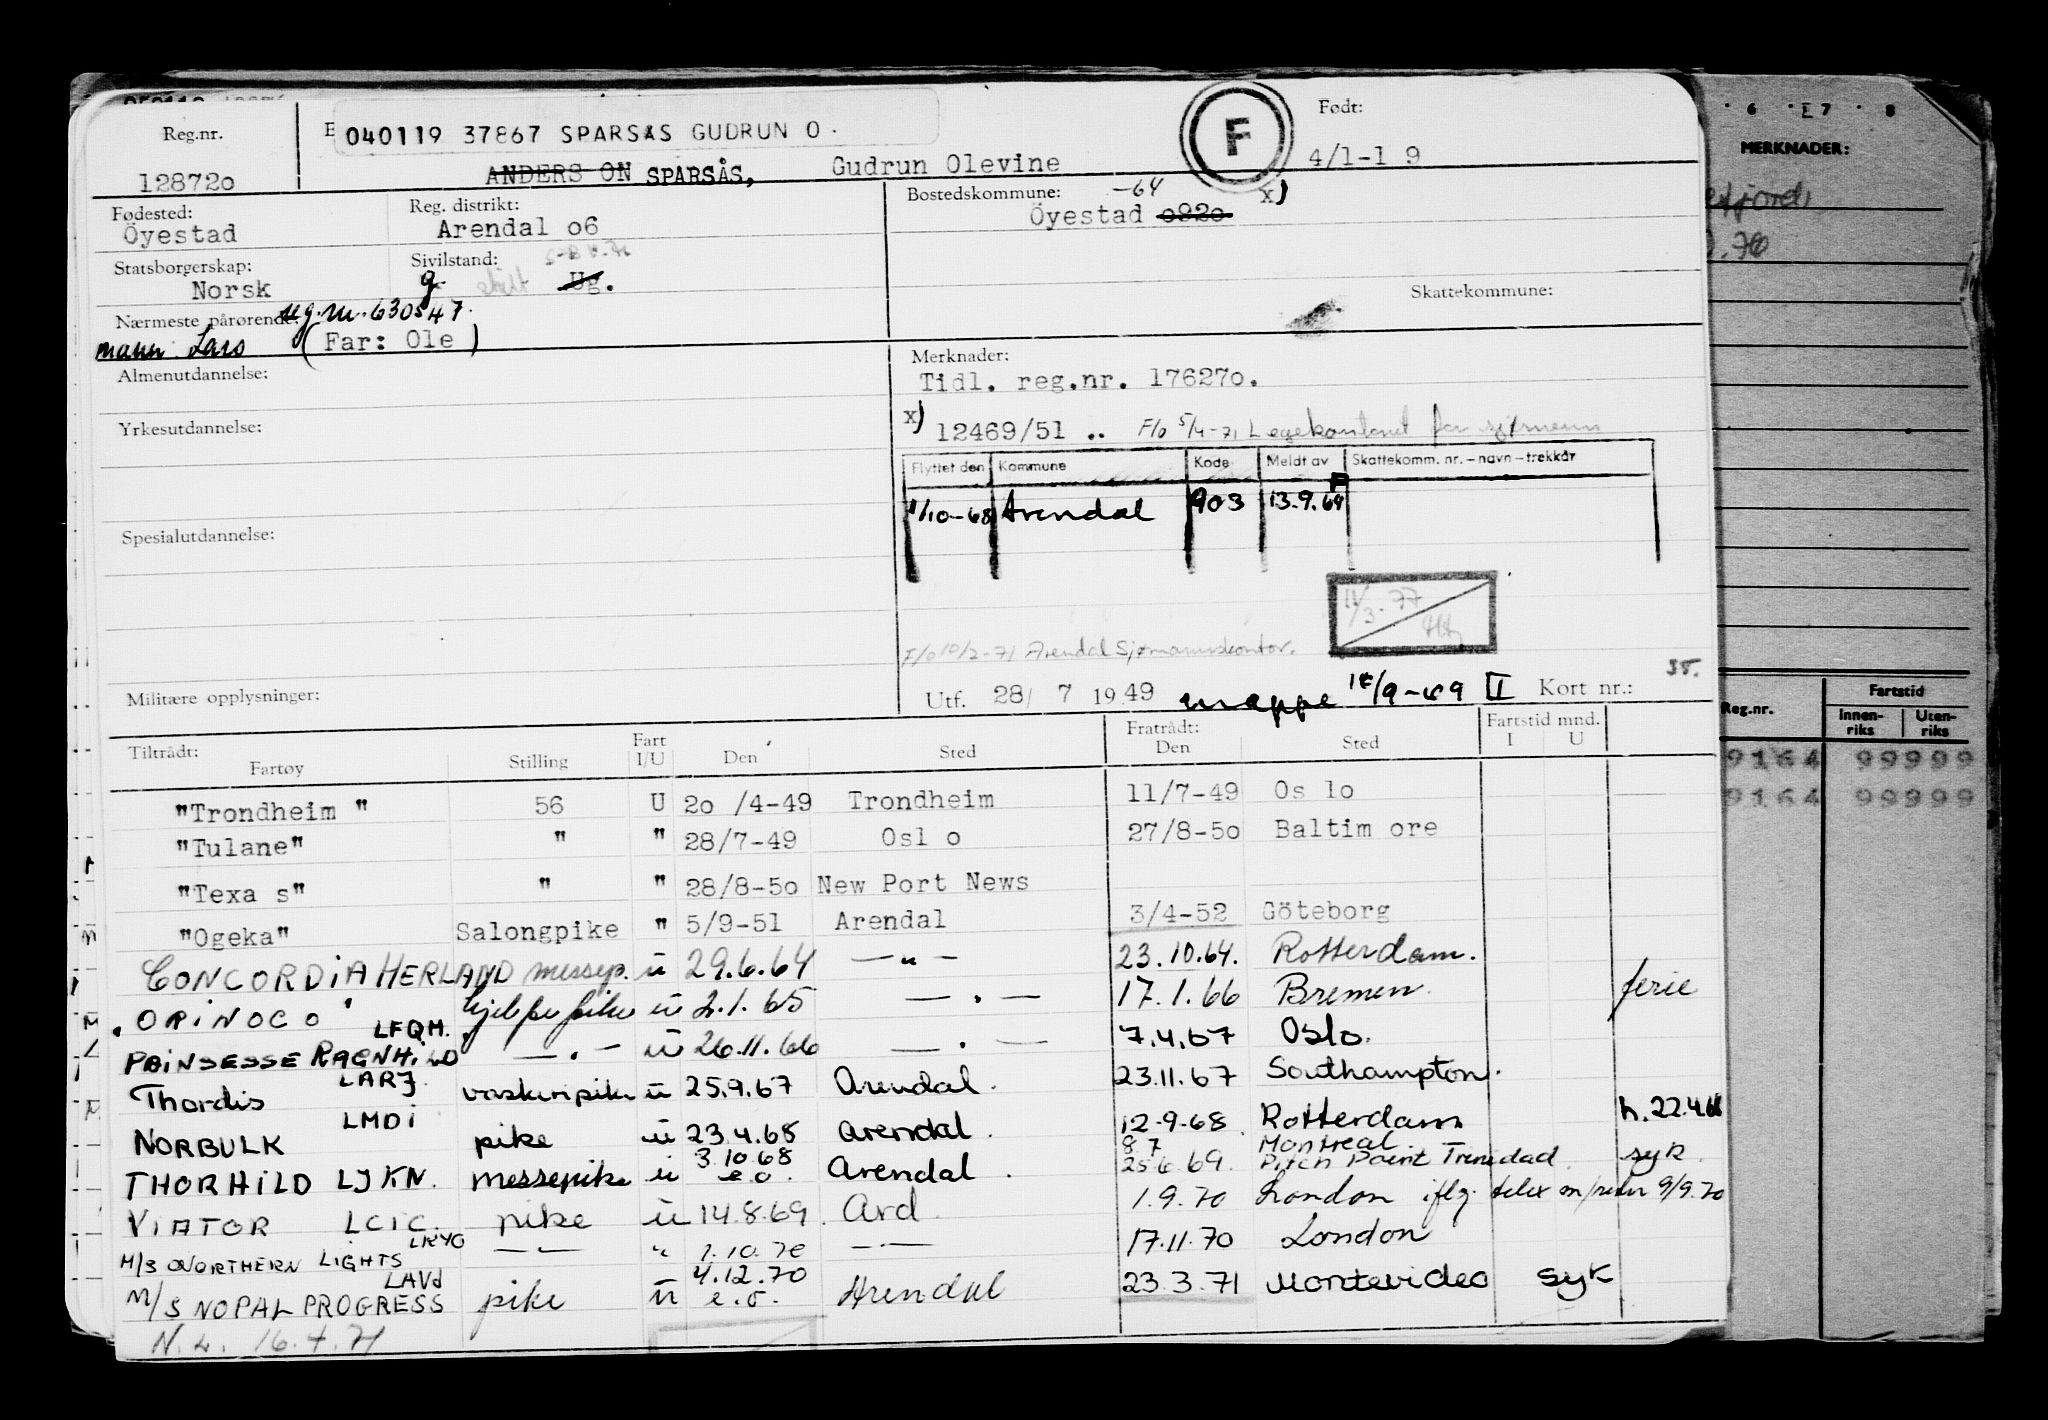 Reg.nr.
040119 37867 SPARSÅS GUDRUN O.
F
Født:
12872o
ANDERS ON SPARSÅS, Gudrun Olevine
4/1-1 9
Fødested:
Öyestad
Reg. distrikt:
Arendal o6
Bostedskommune: -64 x)
Öyestad o92o
Statsborgerskap:
Norsk
Sivilstand:
g. skilt Ug.
Skattekommune:
Nærmeste pårørende: ug.m. 630547.
mann Lars (Far: Ole )
Almenutdannelse:
Merknader:
Tidl. reg.nr. 17627o.
Yrkesutdannelse:
x) 12469/51 .. F/o 5/4-71 Legekontoret for sjømenn
Flyttet den Kommune Kode Meldt av Skattekomm. nr. – navn – trekkår
1/10-68 Arendal 903 13.9.69 F
Spesialutdannelse:
11/3-77
F/o 10/2-71 Arendal Sjømannskontor.
Militære opplysninger:
Utf. 28/ 7 19 49 mappe 18/9-69 II Kort nr.: 35.
Tiltrådt:
Fartøy Stilling Fart I/U Den Sted Fratrådt: Den Sted Fartstid mnd. I U
"Trondheim " 56 U 2o /4-49 Trondheim 11/7-49 Os lo
"Tulane" " " 28/7-49 Osl o 27/8-5o Baltim ore
"Texa s" " " 28/8-5o New Port News
"Ogeka" Salongpike " 5/9-51 Arendal 3/4-52 Göteborg
CONCORDIA HERLAND messep. u 29.6.64 — " — 23.10.64. Rotterdam.
"ORINOCO" hjelpepike u 2.1.65 — " — 17.1.66 Bremen. ferie
PRINSESSE RAGNHILD LFQM. — " — u 26.11.66 — " — 7.4.67 Oslo.
Thordis LARJ. vaskeripike u 25.9.67 Arendal. 23.11.67 Southampton.
NORBULK LMDI pike u 23.4.68 Arendal. 12-9-68. Rotterdam h.22.4.68
THORHILD LJKN. messepike u 3.10.68 e.o. Arendal. 8 7 Montreal
25.6.69. Pitch Point Trinidad. syk.
VIATOR LCIC. pike u 14.8.69. Ard. 1.9.70 London iflg. telex m/rederi 9/9.70
M/S NORTHERN LIGHTS LKYG — " — " 1.10.70 — " — 17.11.70 London
M/S NOPAL PROGRESS LAVd pike u 4.12.70 e.o. Arendal 23.3.71 Montevideo syk
N.L. 16.4.71
6 7 8
MERKNADER:
Reg.nr. Fartstid
Innen-riks Uten-riks
9164 99999
9164 99999